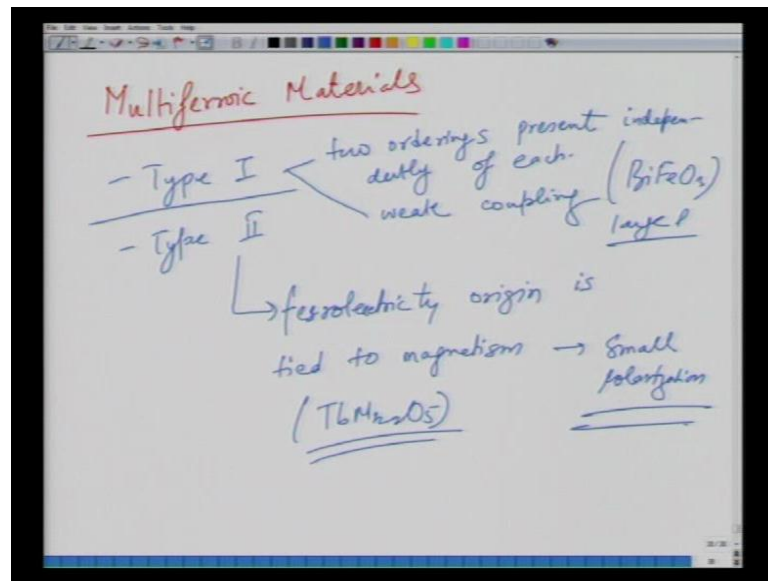 File Edit View Insert Actions Tools Help
Multiferroic Materials
- Type I
two orderings present indepen-
dently of each.
weak coupling (BiFeO3)
large P
- Type II
ferroelectricity origin is
tied to magnetism → Small
polarization
(TbMn2O5)